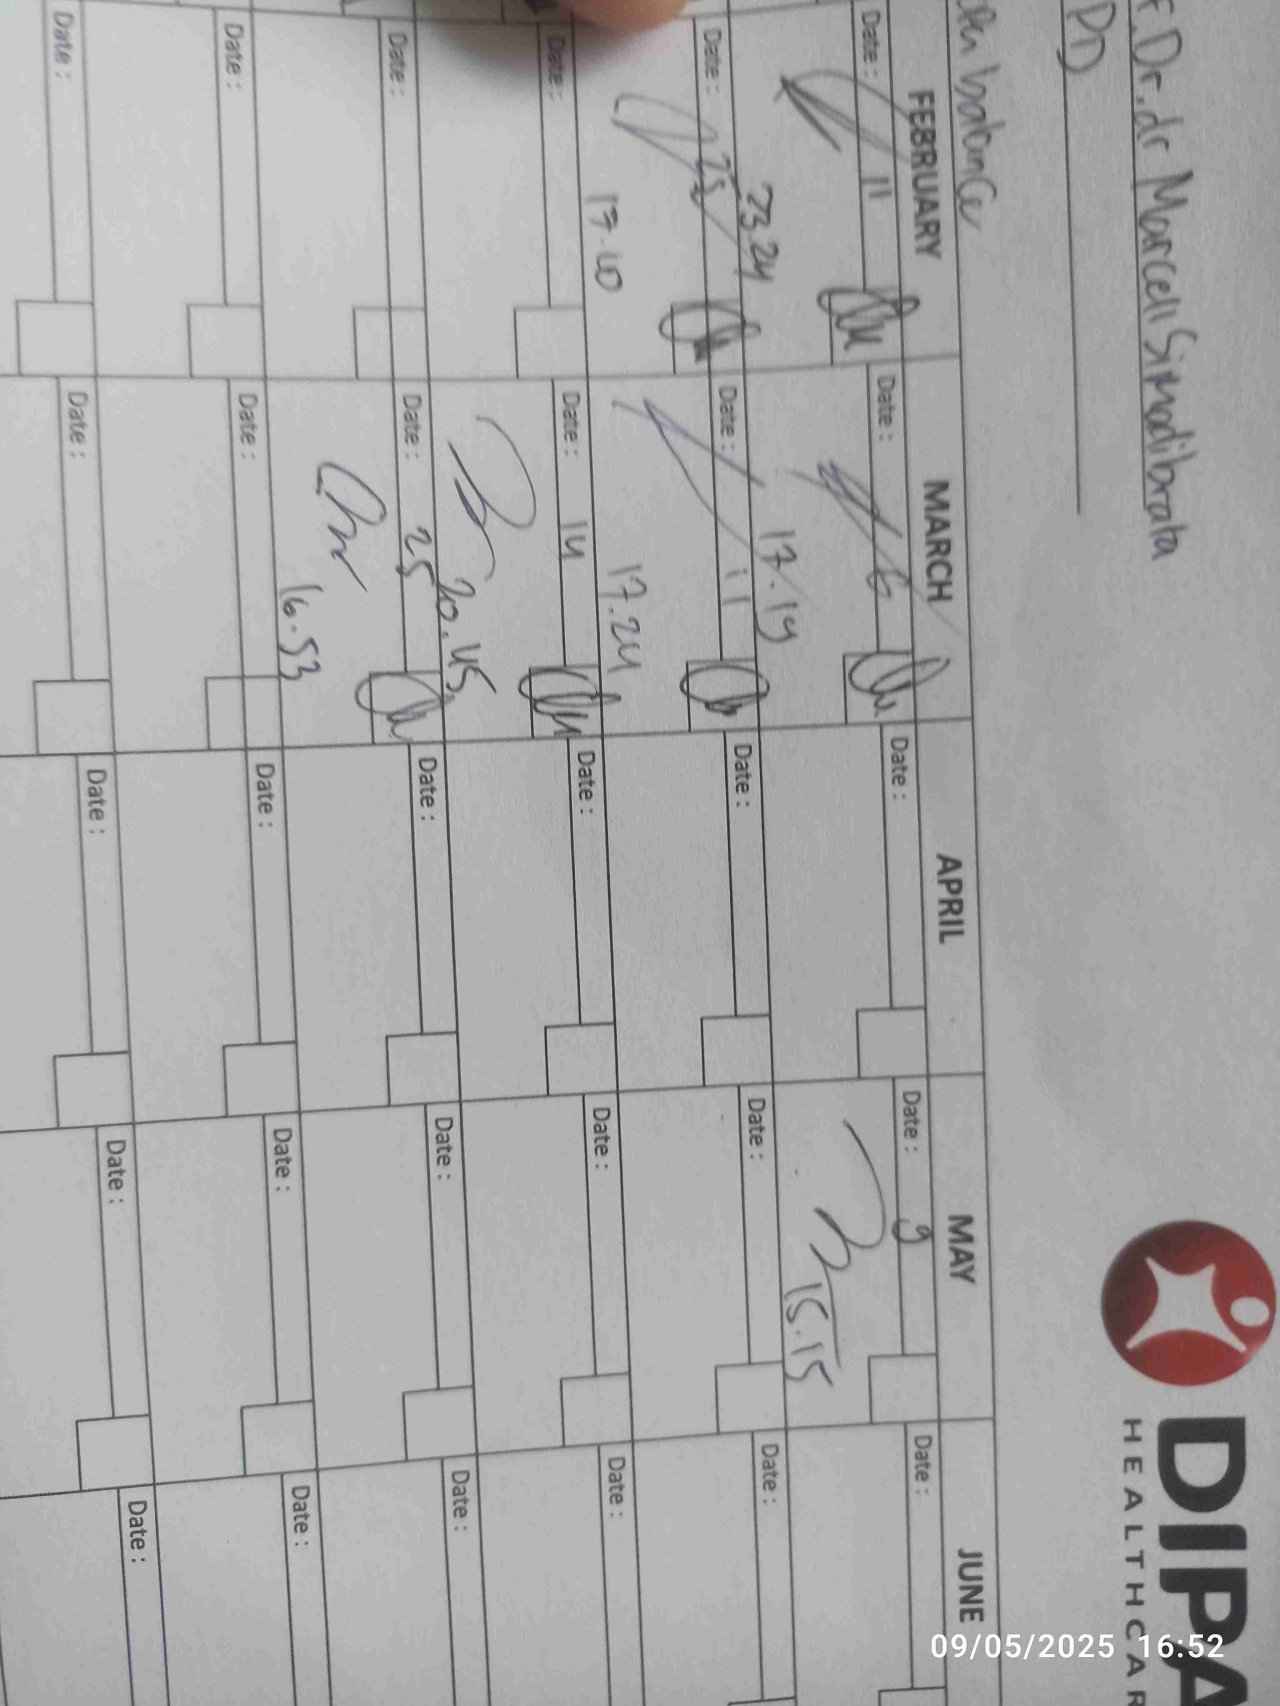 F. Dr. dr Marcell Simadibrata
PD
DIPA
HEALTHCAR
balance
FEBRUARY MARCH APRIL MAY JUNE
Date : 11 Date : 6 Date : Date : 9 Date :
23.24 17.19 15.15
Date : 25 Date : 11 Date : Date : Date :
17.40 17.24
Date : Date : 14 Date : Date : Date :
20.45
Date : Date : 25 Date : Date : Date :
16.53
Date : Date : Date : Date : Date :
Date : Date : Date : Date : Date :
09/05/2025 16:52